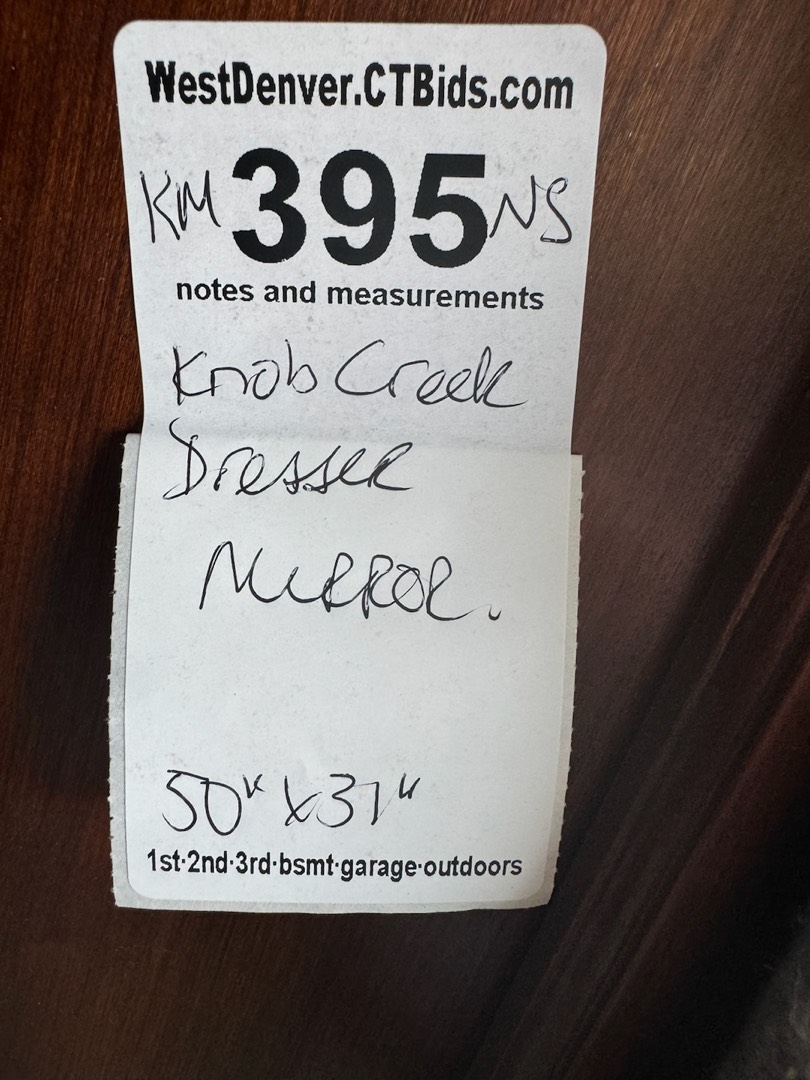 WestDenver.CTBids.com
KM 395 NS
notes and measurements
Knob Creek
Dresser
Mirror.
50" x 37"
1st·2nd·3rd·bsmt·garage·outdoors